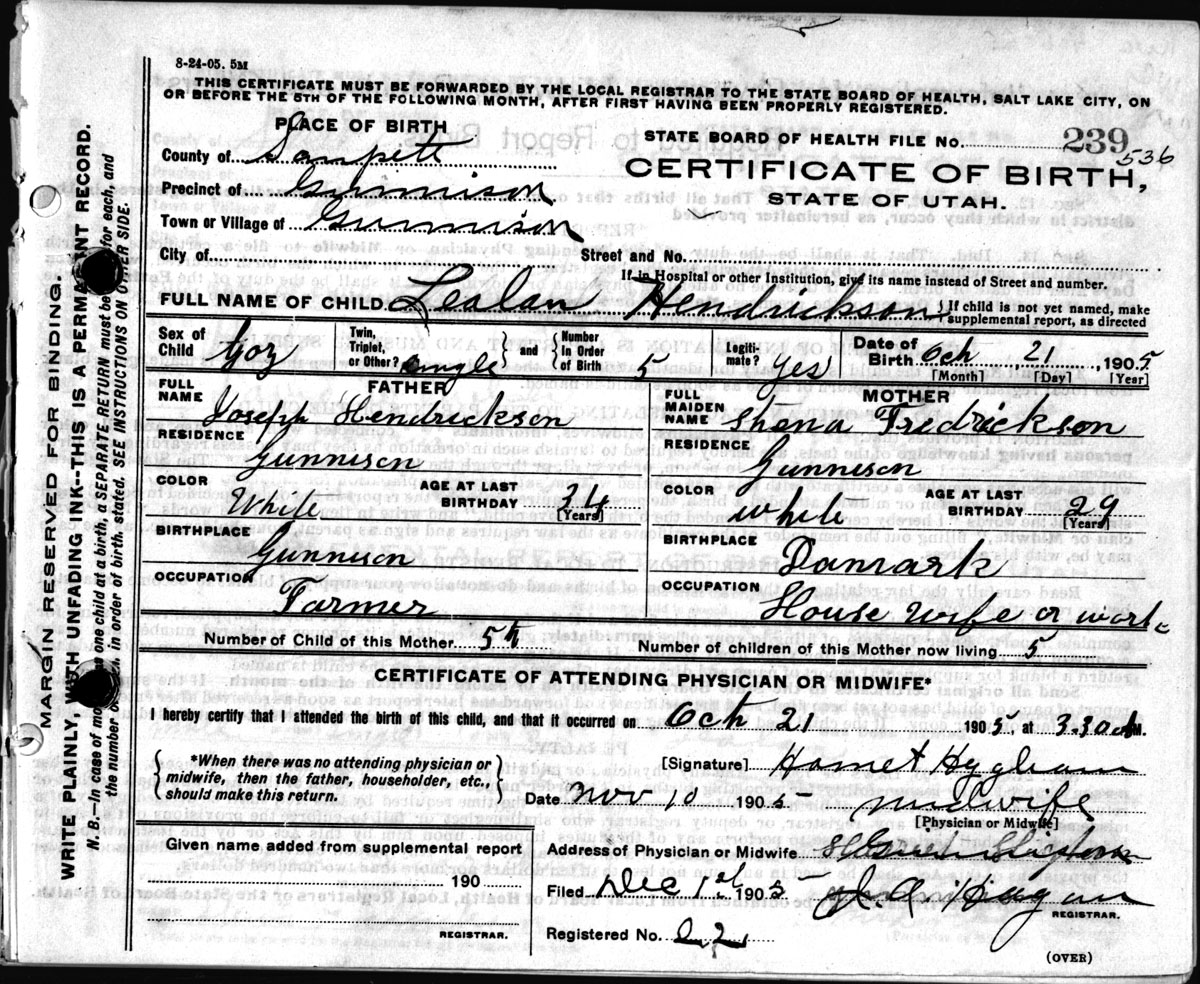 8-24-05. 5M
THIS CERTIFICATE MUST BE FORWARDED BY THE LOCAL REGISTRAR TO THE STATE BOARD OF HEALTH, SALT LAKE CITY, ON
OR BEFORE THE 5TH OF THE FOLLOWING MONTH, AFTER FIRST HAVING BEEN PROPERLY REGISTERED.
PLACE OF BIRTH
STATE BOARD OF HEALTH FILE NO. 239 536
County of Sanpete
CERTIFICATE OF BIRTH,
Precinct of Gunnison
STATE OF UTAH.
Town or Village of Gunnison
City of Street and No.
If in Hospital or other Institution, give its name instead of Street and number.
FULL NAME OF CHILD Lealan Hendrickson { If child is not yet named, make
supplemental report, as directed
Sex of Child boy Twin, Triplet, or Other? single and Number in Order of Birth 5 Legitimate? yes Date of Birth Oct 21, 1905
[Month] [Day] [Year]
FATHER MOTHER
FULL NAME Joseph Hendrickson FULL MAIDEN NAME Shena Fredrickson
RESIDENCE Gunnison RESIDENCE Gunnison
COLOR White AGE AT LAST BIRTHDAY 34 [Years] COLOR white AGE AT LAST BIRTHDAY 29 [Years]
BIRTHPLACE Gunnison BIRTHPLACE Danmark
OCCUPATION Farmer OCCUPATION House wife or work
Number of Child of this Mother 5th Number of children of this Mother now living 5
CERTIFICATE OF ATTENDING PHYSICIAN OR MIDWIFE*
I hereby certify that I attended the birth of this child, and that it occurred on Oct 21 1905, at 3.30 AM.
*When there was no attending physician or
midwife, then the father, householder, etc.,
should make this return.
[Signature]
Date Nov 10 1905 midwife
[Physician or Midwife]
Given name added from supplemental report
Address of Physician or Midwife
190
Filed Dec 1st 1905
REGISTRAR.
REGISTRAR.
Registered No.
(OVER)
MARGIN RESERVED FOR BINDING.
WRITE PLAINLY, WITH UNFADING INK--THIS IS A PERMANENT RECORD.
N. B.--In case of more than one child at a birth, a SEPARATE RETURN must be made for each, and
the number of each, in order of birth, stated. SEE INSTRUCTIONS ON OTHER SIDE.